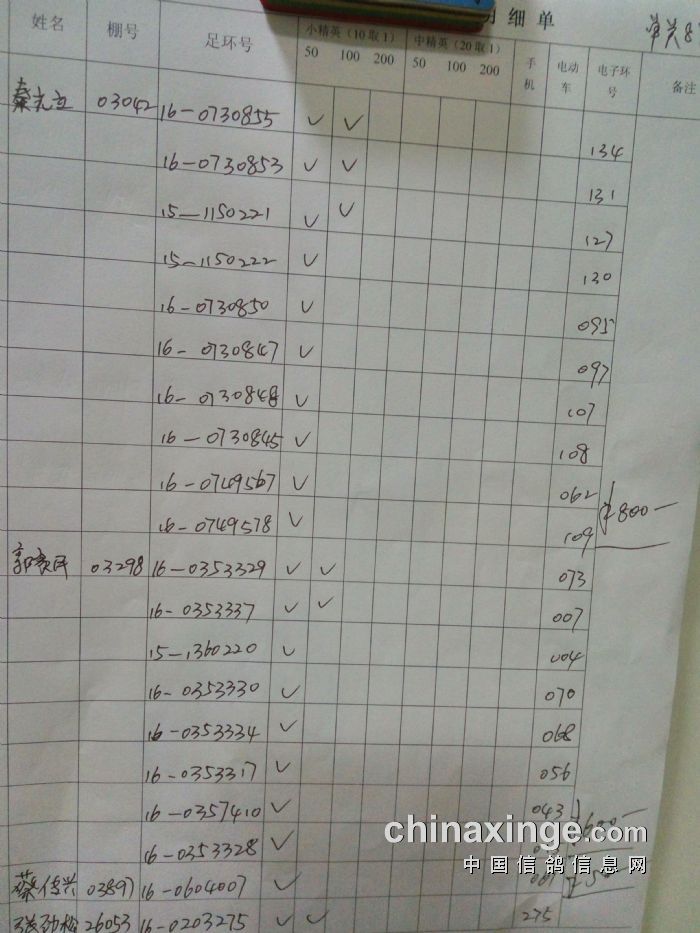 明细单
姓名 棚号 足环号 小精英（10取1） 中精英（20取1） 手机 电动车 电子环号 备注
50 100 200 50 100 200
秦光立 03042 16-0730855 ✓ ✓ 134
16-0730853 ✓ ✓ 131
15-1150221 ✓ ✓ 127
15-1150222 ✓ 130
16-0730850 ✓ 095
16-0730847 ✓ 097
16-0730848 ✓ 107
16-0730845 ✓ 108
16-0749567 ✓ 062
16-0749578 ✓ 109 800-
03298 16-0353329 ✓ ✓ 073
16-0353337 ✓ ✓ 007
15-1360220 ✓ 004
16-0353330 ✓ 070
16-0353334 ✓ 068
16-0353317 ✓ 056
16-0357410 ✓ 043 600-
16-0353328 ✓
蔡传兴 03897 16-0604007 ✓ 50-
张劲松 26053 16-0203275 ✓ ✓ 275
chinaxinge.com
中国信鸽信息网